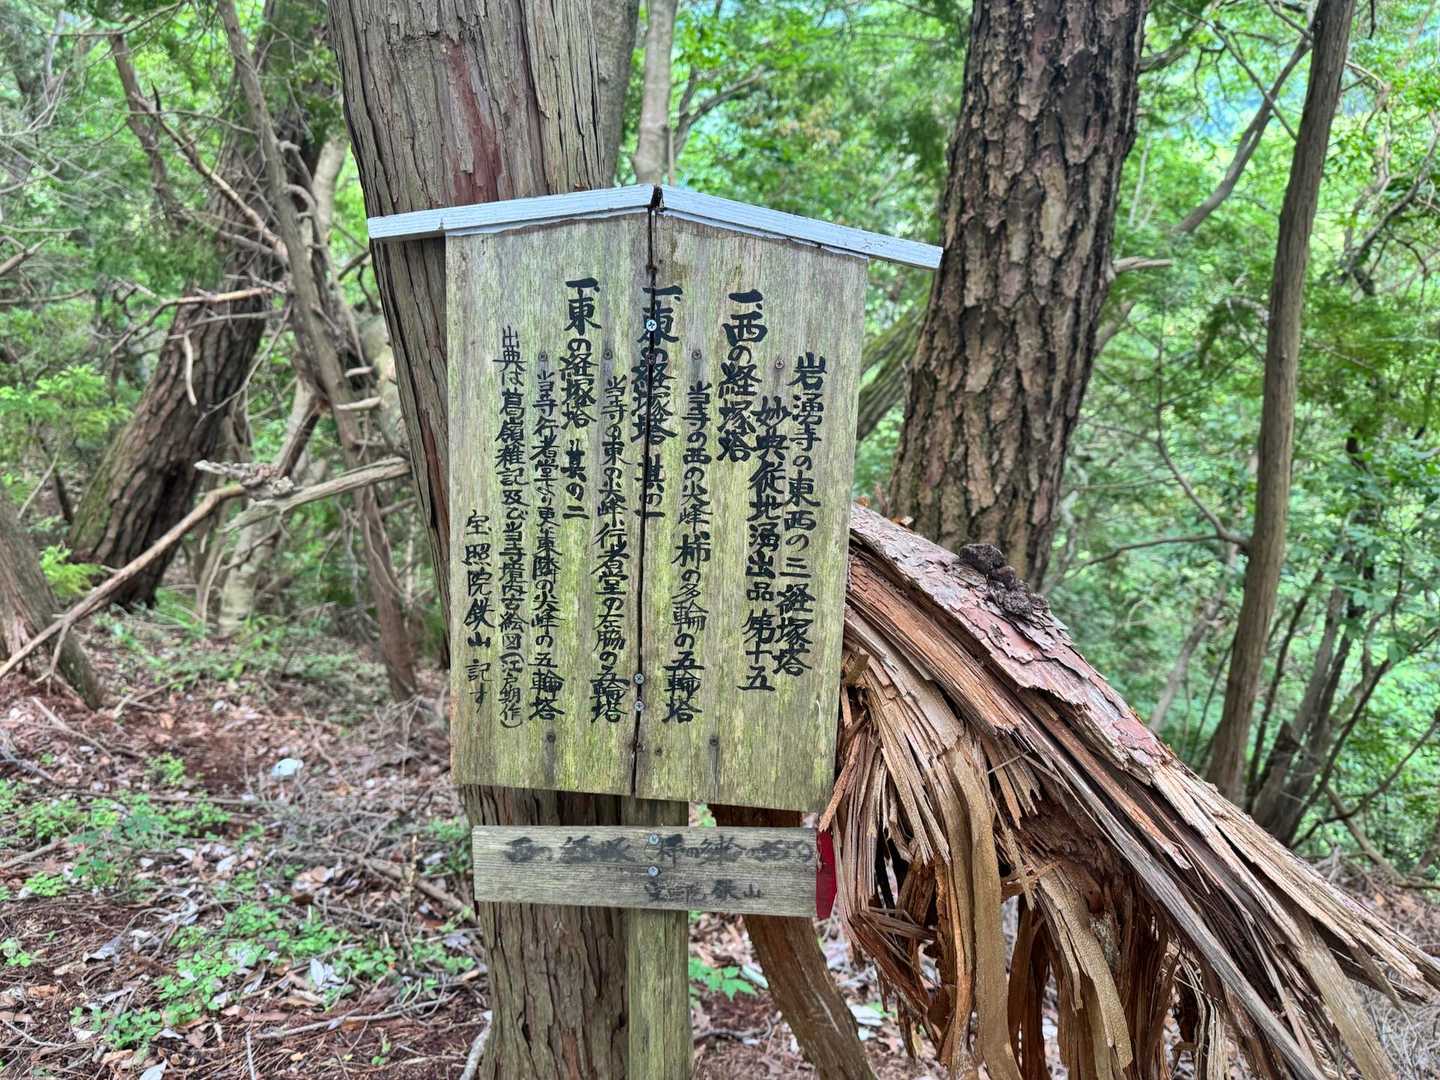 岩湧寺の東西の三経塚塔
妙典従地湧出品第十五
一、西の経塚塔
当寺の西の火峰、柿の多輪の五輪塔
一、東の経塚塔 其の一
当寺の東の峰、小行者堂の左脇の五輪塔
一、東の経塚塔 其の二
当寺行者堂より更に東隣の火峰の五輪塔
出典は葛嶺雑記及び当寺境内古絵図(江戸期作)
宝照院鉄山 記す
西の経塚 柿の多輪
宝照院 鉄山